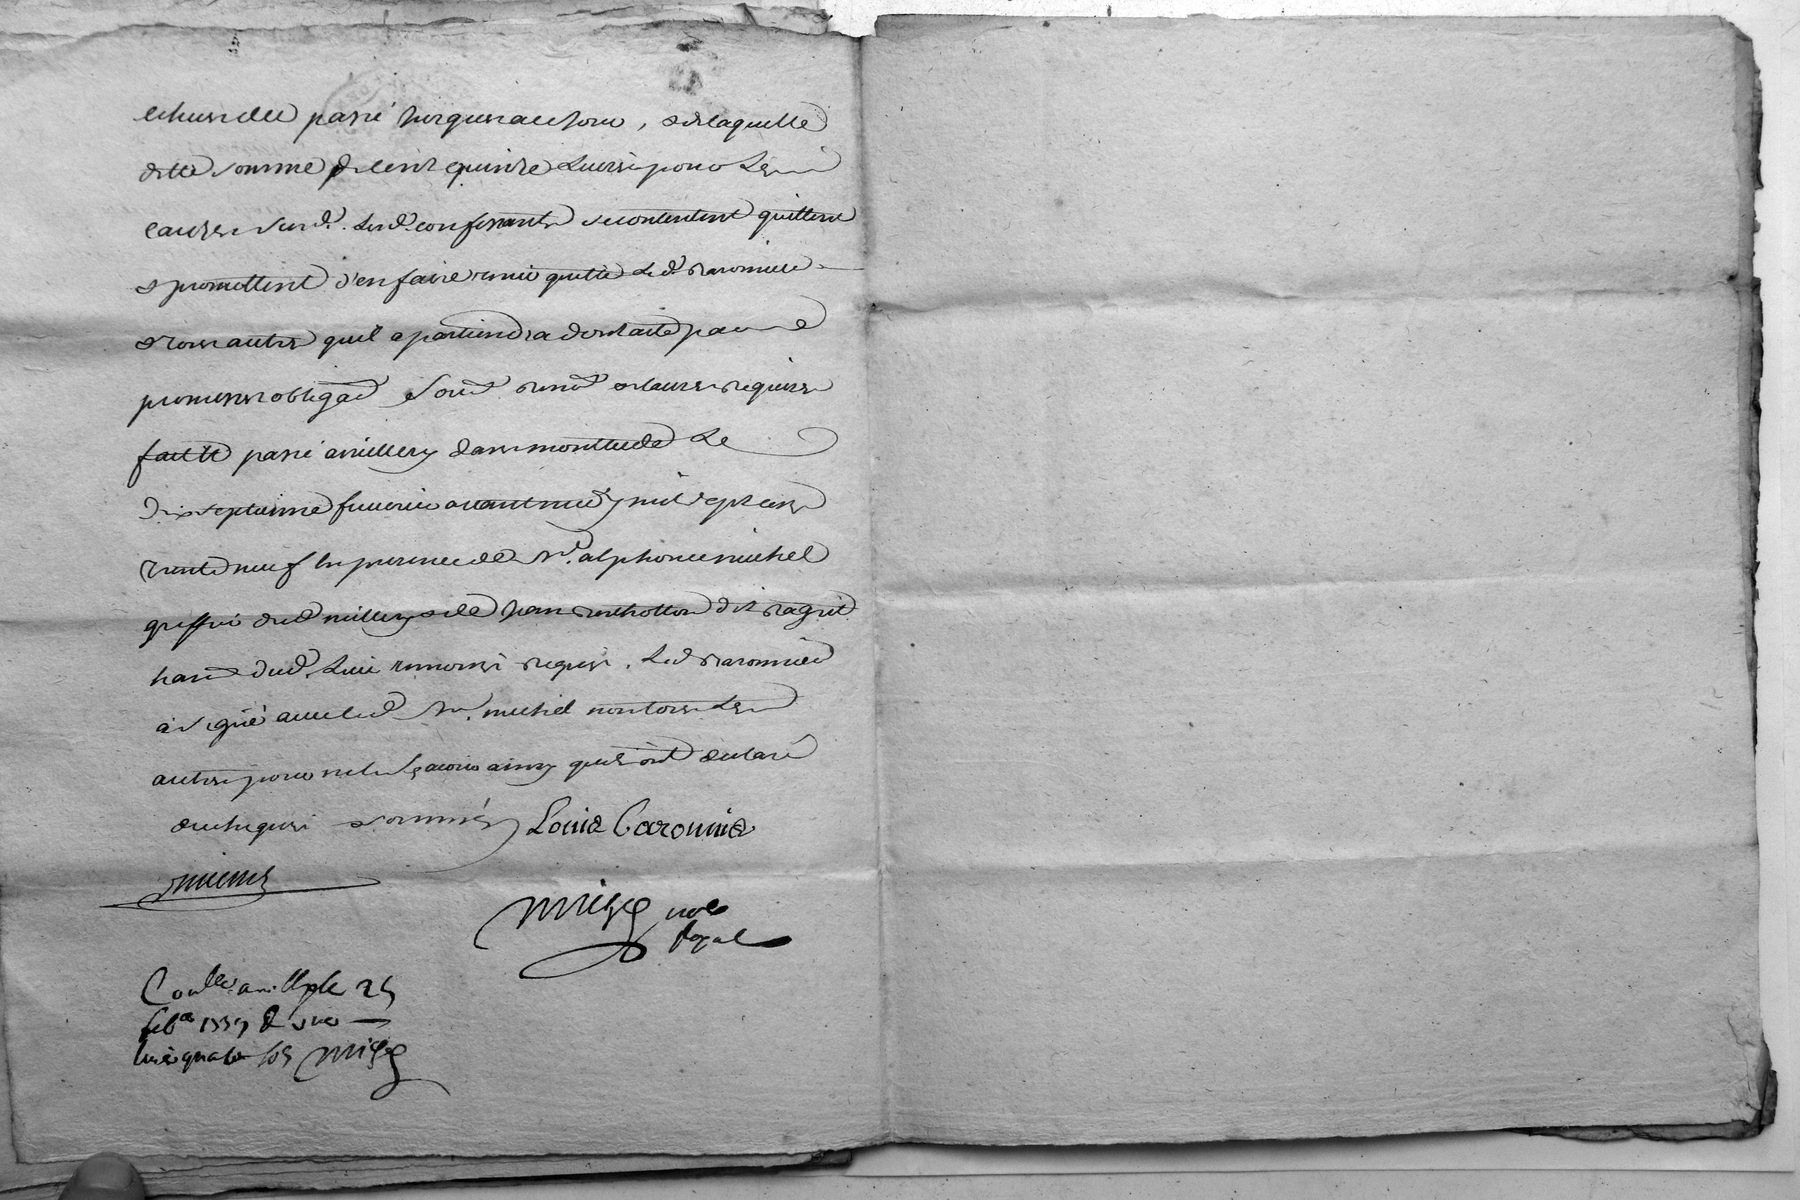 echue de passé jusques a ce jour, de laquelle
ditte somme de cent quinze livres pour les
causes susd. lesd. confessants se contentent quittent
& promettent d'en faire tenir quitte led. Caronnier
& tous autres qu'il apartiendra dont acte par
promesses obligaõn soumõn renõn & clauses requises
fait & passé a millery dans mon etude le
dix septieme fevrier avant midy mil sept cens
trente neuf en presence de Sr. alphonce michel
greffier dud. millery & de Jean berthollon dit
habt. dud. lieu temoins requis. led. Caronnier
a signé avec led. Sr. michel non tous les
autres pour ne le sçavoir ainsy qu'ils ont declaré
de ce enquis & sommés Louis Caronnie
michel
nore
Royal
Conllé a millery le 25
feb.er 1739 R une
livre quatre sols